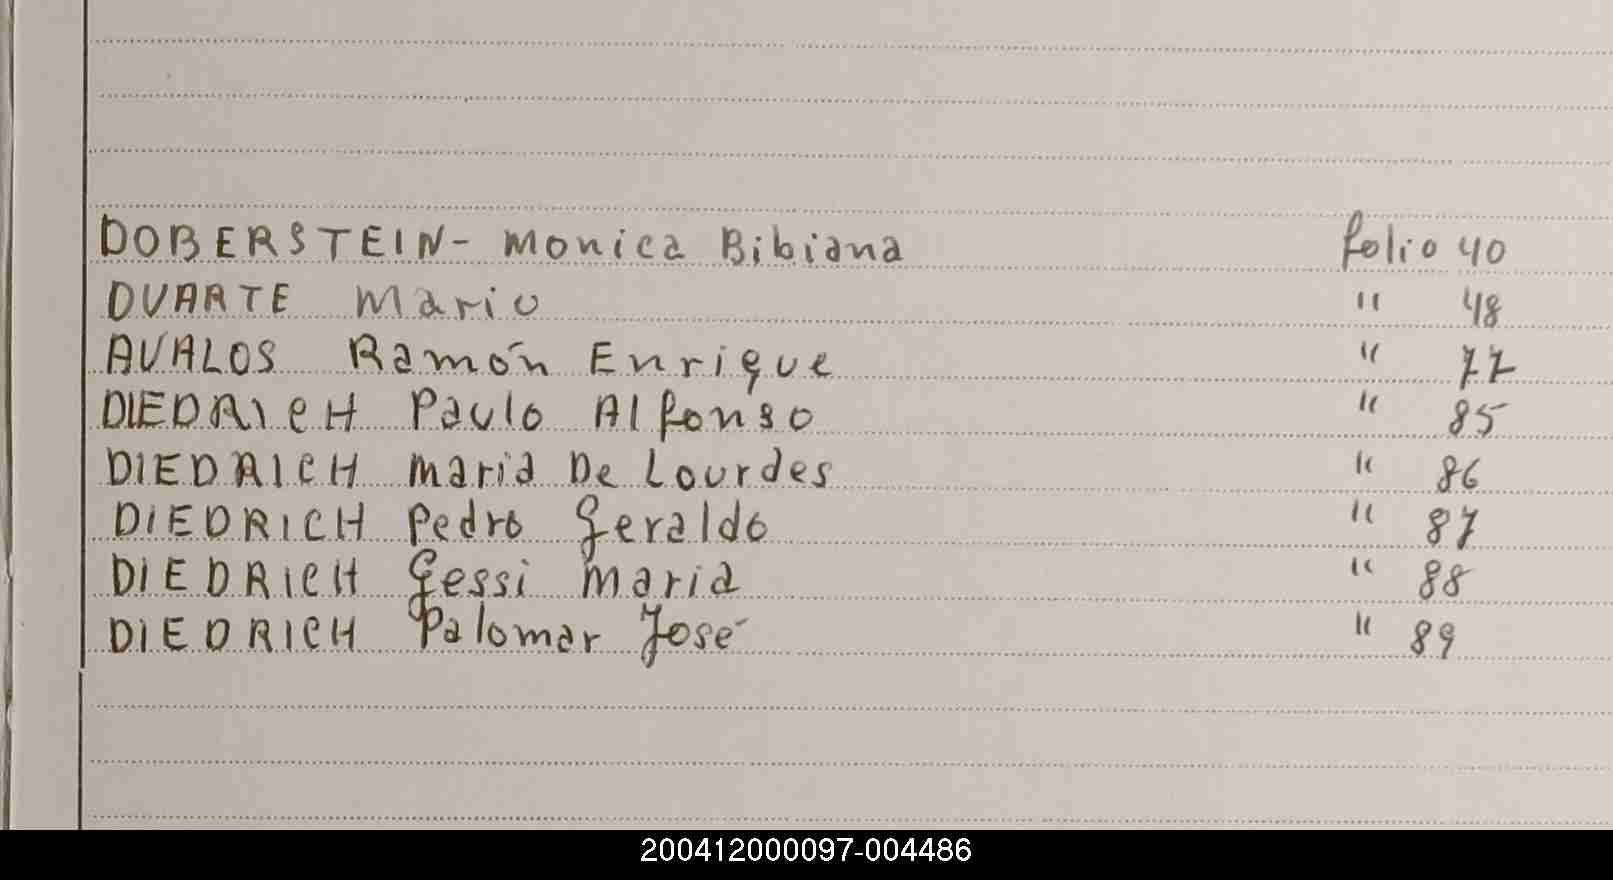 DOBERSTEIN- Monica Bibiana folio 40
DUARTE Mario " 48
AVALOS Ramón Enrique " 77
DIEDRICH Paulo Alfonso " 85
DIEDRICH Maria De Lourdes " 86
DIEDRICH Pedro Geraldo " 87
DIEDRICH Gessi Maria " 88
DIEDRICH Palomar José " 89
200412000097-004486